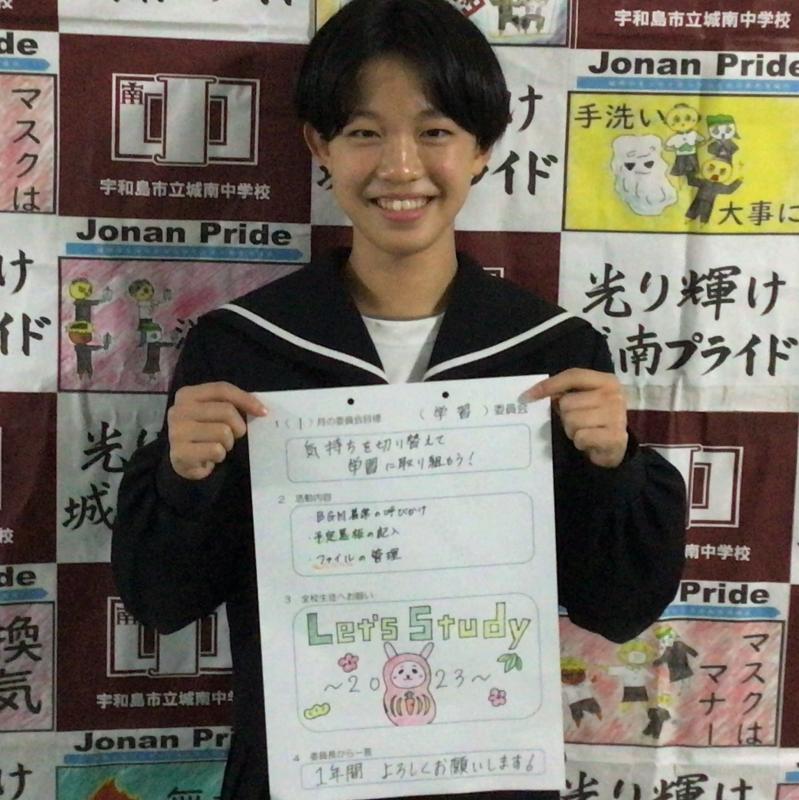 宇和島市立城南中学校
Jonan Pride
手洗い
大事に
光り輝け
城南プライド
ride
マスクは
南
宇和島市立城南中学校
Jonan Pride
け
イド
光
城
換気
Jonan Pri
南中学校
Pride
マスクは
マナー
1(1)月の委員会目標 (学習)委員会
気持ちを切り替えて
学習に取り組もう!
2 活動内容
・BGM基準の呼びかけ
・予定黒板の記入
・ファイルの管理
3 全校生徒へお願い
Let's Study
~2023~
4 委員長から一言
1年間 よろしくお願いします
宇和島市立城南中学校
光り輝け